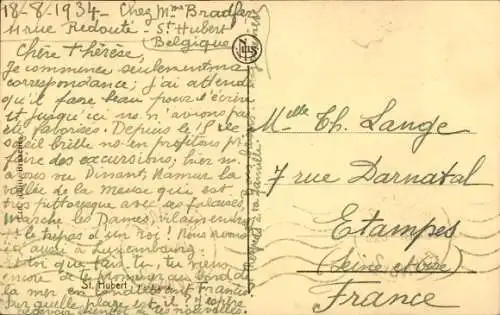 18-8-1934 - Chez Mme Bradfer
11 rue Redouté - St Hubert
(Belgique)
Chère Thérèse,
Je commence seulement ma
correspondance; j'ai attendu
qu'il fasse beau pour t'écrire
et jusqu'ici ns n'avions pas
été favorisés. Depuis le 15 le
soleil brille ns en profitons pr
faire des excursions; hier ns
avons vu Dinant, Namur la
vallée de la meuse qui est
très pittoresque avec ses falaises,
Marche les Dames, vilain endroit
le trépas d'un roi! Nous irons
aussi à Luxembourg.
Et toi que fais tu, tu viens
encore de te promener au bord de
la mer en
Sur quelle plage est-il? J'espère
recevoir bientôt de tes nouvelles.
St. Hubert
Nels
Mlle Th. Lange
7 rue Darnatal
Etampes
(Seine et Oise)
France